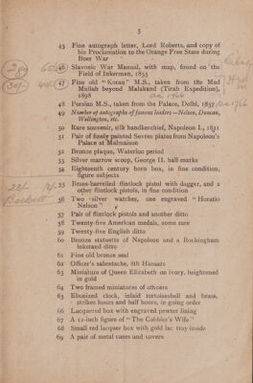 3
45 Fine autograph letter, Lord Roberts, and copy of
his Proclamation to the Orange Free State during
Boer War
46 Slavonic War Manual, with map, found on the
Field of Inkerman, 1855
47 Fine old "Koran" M.S., taken from the Mad
Mullah beyond Malakand (Tirah Expedition),
1898
48 Persian M.S., taken from the Palace, Delhi, 1857
49 Number of autographs of famous leaders—Nelson, Duncan,
Wellington, etc.
50 Rare souvenir, silk handkerchief, Napoleon I., 1821
51 Pair of finely painted Sevres plates from Napoleon's
Palace at Malmaison
52 Bronze plaque, Waterloo period
53 Silver marrow scoop, George II. hall marks
54 Eighteenth century horn box, in fine condition,
figure subjects
55 Brass-barrelled flintlock pistol with dagger, and 2
other flintlock pistols, in fine condition
56 Two silver watches, one engraved "Horatio
Nelson"
57 Pair of flintlock pistols and another ditto
58 Twenty-five American medals, some rare
59 Twenty-five English ditto
60 Bronze statuette of Napoleon and a Rockingham
inkstand ditto
61 Fine old bronze seal
62 Officer's sabretache, 8th Hussars
63 Miniature of Queen Elizabeth on ivory, heightened
in gold
64 Two framed miniatures of officers
65 Ebonized clock, inlaid tortoiseshell and brass,
strikes hours and half hours, in going order
66 Lacquered box with engraved pewter lining
67 A 12-inch figure of "The Cobbler's Wife"
68 Small red lacquer box with gold lac tray inside
69 A pair of metal vases and covers